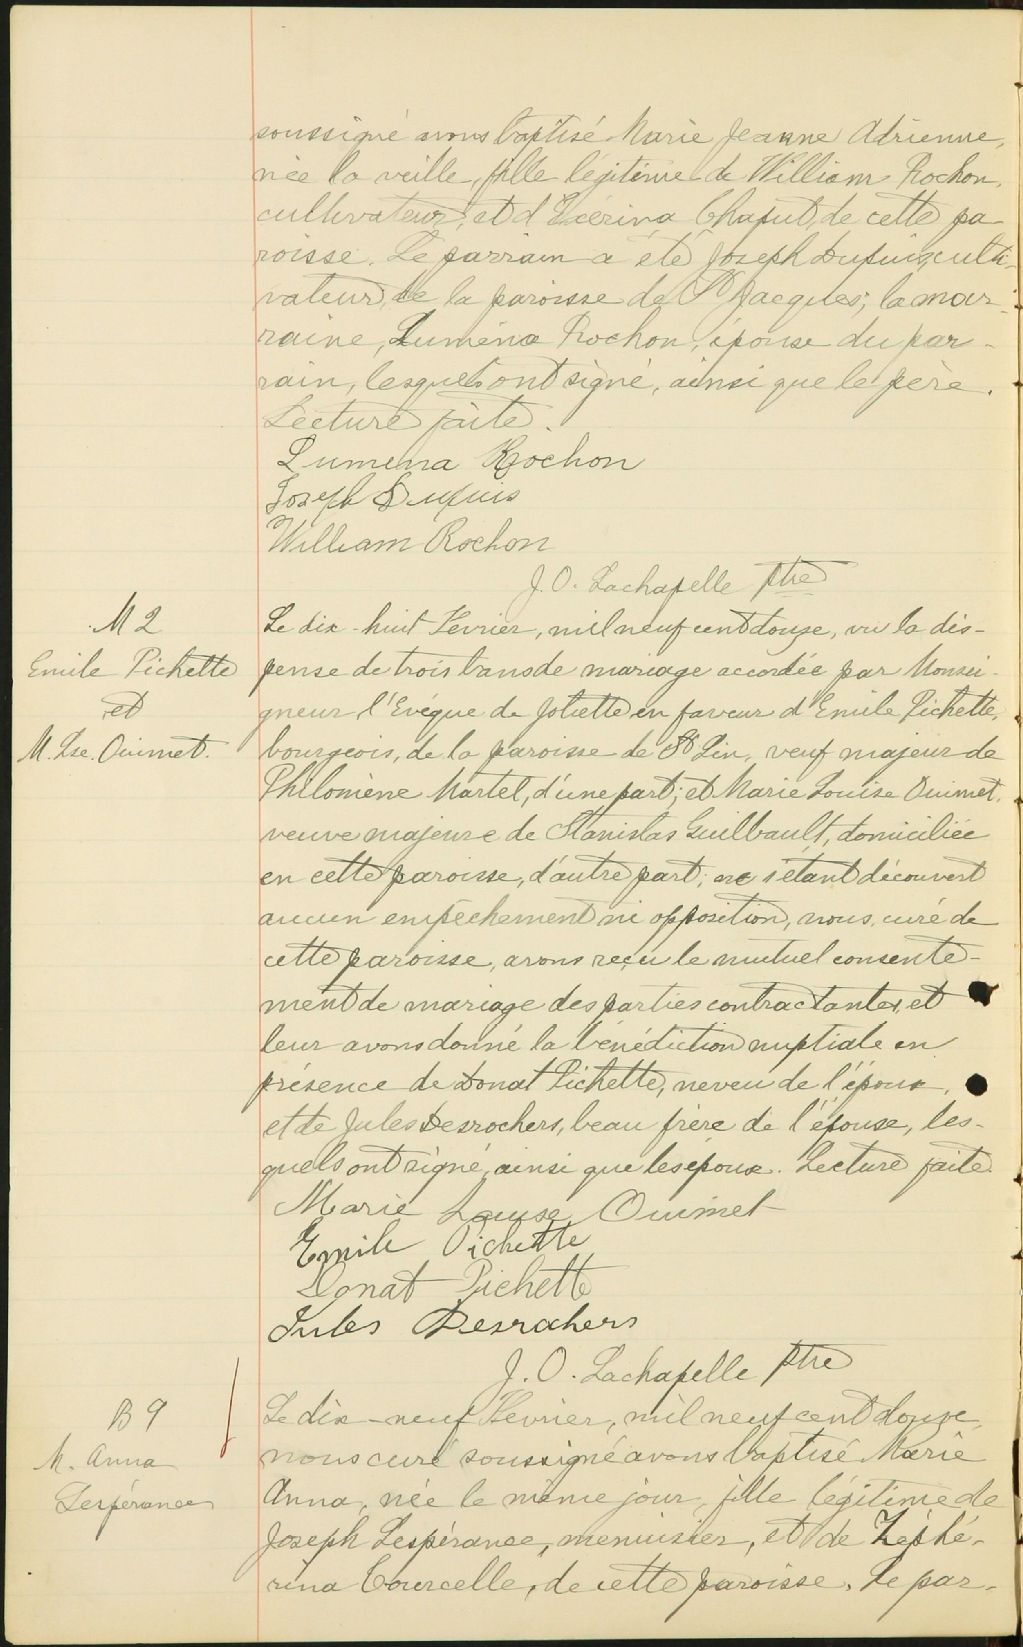 soussigné avons baptisé Marie Jeanne Adrienne,
née la veille, fille légitime de William Rochon,
cultivateur, et d'Exérina Chaput, de cette pa-
roisse. Le parrain a été Joseph Dupuis, culti-
vateur, de la paroisse de St Jacques; la mar-
raine, Luména Rochon, épouse du par-
rain, lesquels ont signé, ainsi que le père.
Lecture faite.
Lumena Rochon
Joseph Dupuis
William Rochon
J. O. Lachapelle ptre
M 2
Emile Pichette
et
M. Lse. Ouimet.
Le dix-huit Février, mil neuf cent douze, vu la dis-
pense de trois bans de mariage accordée par Monsei-
gneur l'Evêque de Joliette en faveur d'Emile Pichette,
bourgeois, de la paroisse de St Lin, veuf majeur de
Philomène Martel, d'une part; et Marie Louise Ouimet,
veuve majeure de Stanislas Guilbault, domiciliée
en cette paroisse, d'autre part; ne s'étant découvert
aucun empêchement ni opposition, nous, curé de
cette paroisse, avons reçu le mutuel consente-
ment de mariage des parties contractantes, et
leur avons donné la bénédiction nuptiale en
présence de Donat Pichette, neveu de l'époux,
et de Jules Desrochers, beau frère de l'épouse, les-
quels ont signé, ainsi que les époux. Lecture faite.
Marie Louise Ouimet
Emile Pichette
Donat Pichette
Jules Desrochers
J. O. Lachapelle ptre
B 9
M. Anna
Lespérance
Le dix-neuf Février, mil neuf cent douze,
nous curé soussigné avons baptisé Marie
Anna, née le même jour, fille légitime de
Joseph Lespérance, menuisier, et de Zéphé-
rina Courcelle, de cette paroisse. Le par-